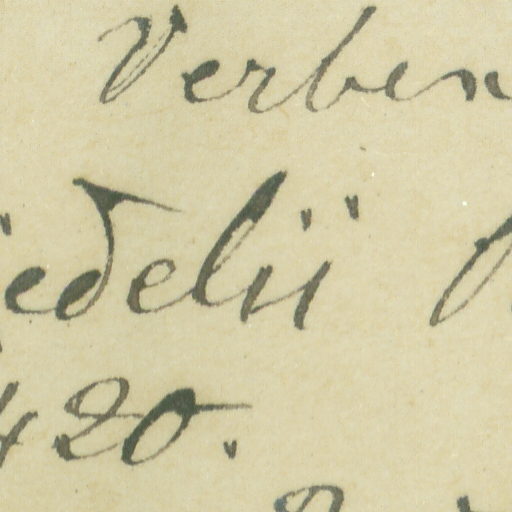 Verben
iedelii
420.